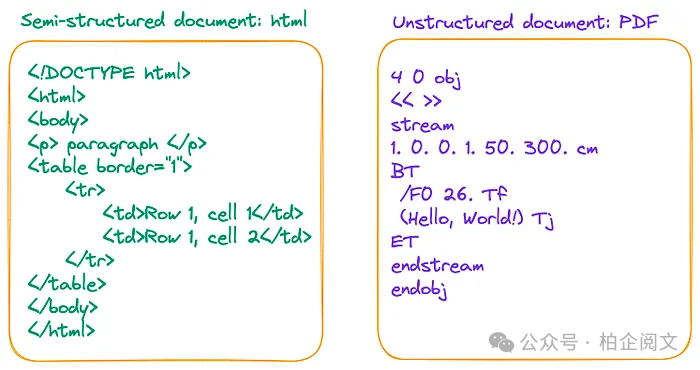 Semi-structured document: html
<!DOCTYPE html>
<html>
<body>
<p> paragraph </p>
<table border="1">
<tr>
<td>Row 1, cell 1</td>
<td>Row 1, cell 2</td>
</tr>
</table>
</body>
</html>
Unstructured document: PDF
4 0 obj
<< >>
stream
1. 0. 0. 1. 50. 300. cm
BT
/F0 26. Tf
(Hello, World!) Tj
ET
endstream
endobj
公众号 · 柏企阅文